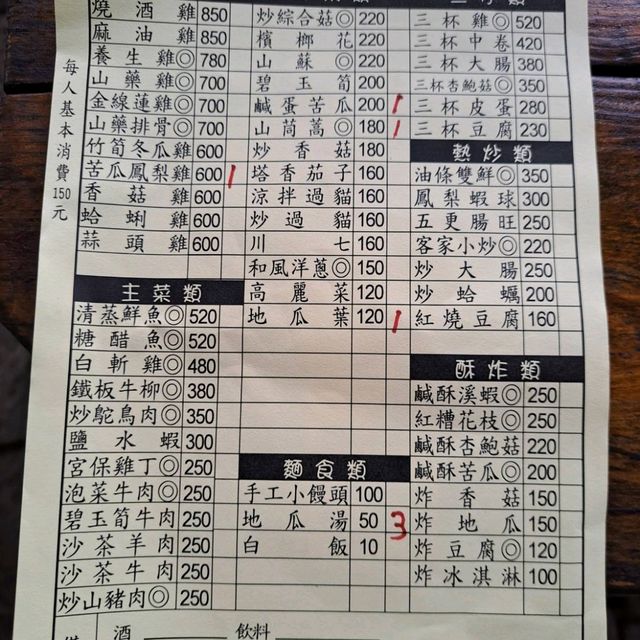 每人基本消費150元
燒酒雞 850
麻油雞 850
養生雞◎ 780
山藥雞◎ 700
金線蓮雞◎ 700
山藥排骨◎ 700
竹筍冬瓜雞 600
苦瓜鳳梨雞 600 1
香菇雞 600
蛤蜊雞 600
蒜頭雞 600
主菜類
清蒸鮮魚◎ 520
糖醋魚◎ 520
白斬雞◎ 480
鐵板牛柳◎ 380
炒鴕鳥肉◎ 350
鹽水蝦 300
宮保雞丁◎ 250
泡菜牛肉◎ 250
碧玉筍牛肉 250
沙茶羊肉 250
沙茶牛肉 250
炒山豬肉◎ 250
炒綜合菇◎ 220
檳榔花 220
山蘇◎ 220
碧玉筍 200
鹹蛋苦瓜 200 1
山茼蒿◎ 180 1
炒香菇 180
塔香茄子 160
涼拌過貓 160
炒過貓 160
川七 160
和風洋蔥◎ 150
高麗菜 120
地瓜葉 120 1
麵食類
手工小饅頭 100
地瓜湯 50 3
白飯 10
三杯雞◎ 520
三杯中卷 420
三杯大腸 380
三杯杏鮑菇◎ 350
三杯皮蛋 280
三杯豆腐 230
熱炒類
油條雙鮮◎ 350
鳳梨蝦球 300
五更腸旺 250
客家小炒◎ 220
炒大腸 250
炒蛤蠣 200
紅燒豆腐 160
酥炸類
鹹酥溪蝦◎ 250
紅糟花枝◎ 250
鹹酥杏鮑菇 220
鹹酥苦瓜◎ 200
炸香菇 150
炸地瓜 150
炸豆腐◎ 120
炸冰淇淋 100
酒 飲料